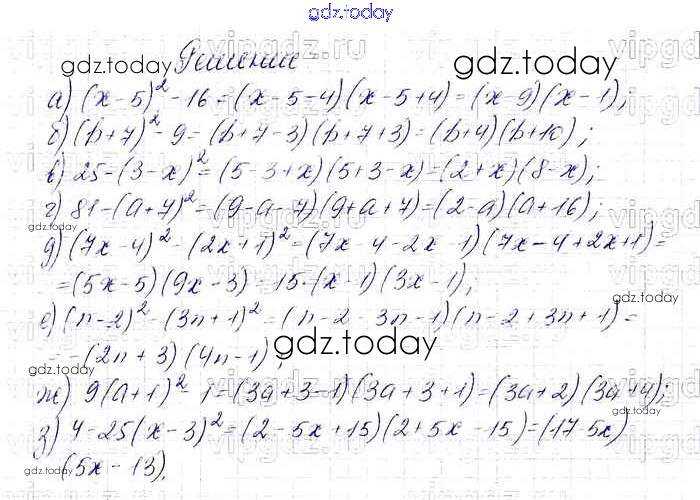 gdz.today
Решение
а) (x-5)² - 16 = (x-5-4)(x-5+4) = (x-9)(x-1);
б) (b+7)² - 9 = (b+7-3)(b+7+3) = (b+4)(b+10);
в) 25-(3-x)² = (5-3+x)(5+3-x) = (2+x)(8-x);
г) 81-(a+7)² = (9-a-7)(9+a+7) = (2-a)(a+16);
д) (7x-4)² - (2x+1)² = (7x-4-2x-1)(7x-4+2x+1) =
= (5x-5)(9x-3) = 15·(x-1)(3x-1);
е) (n-2)² - (3n+1)² = (n-2-3n-1)(n-2+3n+1) =
= -(2n+3)(4n-1);
ж) 9(a+1)² - 1 = (3a+3-1)(3a+3+1) = (3a+2)(3a+4);
з) 4-25(x-3)² = (2-5x+15)(2+5x-15) = (17-5x)
(5x-13).
gdz.today
gdz.today
gdz.today
gdz.today
gdz.today
gdz.today
gdz.today
gdz.today